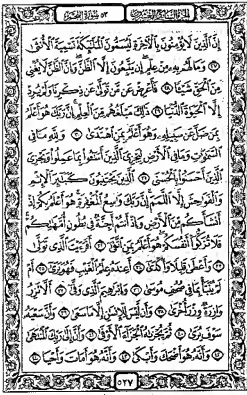 الجزء السابع والعشرون ٥٣ سورة النجم
إِنَّ ٱلَّذِينَ لَا يُؤْمِنُونَ بِٱلْءَاخِرَةِ لَيُسَمُّونَ ٱلْمَلَٰٓئِكَةَ تَسْمِيَةَ ٱلْأُنثَىٰ
٢٧ وَمَا لَهُم بِهِۦ مِنْ عِلْمٍ إِن يَتَّبِعُونَ إِلَّا ٱلظَّنَّ وَإِنَّ ٱلظَّنَّ لَا يُغْنِى
مِنَ ٱلْحَقِّ شَيْـًٔا ٢٨ فَأَعْرِضْ عَن مَّن تَوَلَّىٰ عَن ذِكْرِنَا وَلَمْ يُرِدْ
إِلَّا ٱلْحَيَوٰةَ ٱلدُّنْيَا ٢٩ ذَٰلِكَ مَبْلَغُهُم مِّنَ ٱلْعِلْمِ إِنَّ رَبَّكَ هُوَ أَعْلَمُ
بِمَن ضَلَّ عَن سَبِيلِهِۦ وَهُوَ أَعْلَمُ بِمَنِ ٱهْتَدَىٰ ٣٠ وَلِلَّهِ مَا فِى
ٱلسَّمَٰوَٰتِ وَمَا فِى ٱلْأَرْضِ لِيَجْزِىَ ٱلَّذِينَ أَسَٰٓـُٔوا۟ بِمَا عَمِلُوا۟ وَيَجْزِىَ
ٱلَّذِينَ أَحْسَنُوا۟ بِٱلْحُسْنَى ٣١ ٱلَّذِينَ يَجْتَنِبُونَ كَبَٰٓئِرَ ٱلْإِثْمِ
وَٱلْفَوَٰحِشَ إِلَّا ٱللَّمَمَ إِنَّ رَبَّكَ وَٰسِعُ ٱلْمَغْفِرَةِ هُوَ أَعْلَمُ بِكُمْ إِذْ
أَنشَأَكُم مِّنَ ٱلْأَرْضِ وَإِذْ أَنتُمْ أَجِنَّةٌ فِى بُطُونِ أُمَّهَٰتِكُمْ
فَلَا تُزَكُّوٓا۟ أَنفُسَكُمْ هُوَ أَعْلَمُ بِمَنِ ٱتَّقَىٰٓ ٣٢ أَفَرَءَيْتَ ٱلَّذِى تَوَلَّىٰ
٣٣ وَأَعْطَىٰ قَلِيلًا وَأَكْدَىٰٓ ٣٤ أَعِندَهُۥ عِلْمُ ٱلْغَيْبِ فَهُوَ يَرَىٰٓ ٣٥ أَمْ
لَمْ يُنَبَّأْ بِمَا فِى صُحُفِ مُوسَىٰ ٣٦ وَإِبْرَٰهِيمَ ٱلَّذِى وَفَّىٰٓ ٣٧ أَلَّا تَزِرُ
وَازِرَةٌ وِزْرَ أُخْرَىٰ ٣٨ وَأَن لَّيْسَ لِلْإِنسَٰنِ إِلَّا مَا سَعَىٰ ٣٩ وَأَنَّ سَعْيَهُۥ
سَوْفَ يُرَىٰ ٤٠ ثُمَّ يُجْزَىٰهُ ٱلْجَزَآءَ ٱلْأَوْفَىٰ ٤١ وَأَنَّ إِلَىٰ رَبِّكَ ٱلْمُنتَهَىٰ
٤٢ وَأَنَّهُۥ هُوَ أَضْحَكَ وَأَبْكَىٰ ٤٣ وَأَنَّهُۥ هُوَ أَمَاتَ وَأَحْيَا ٤٤
٥٢٧